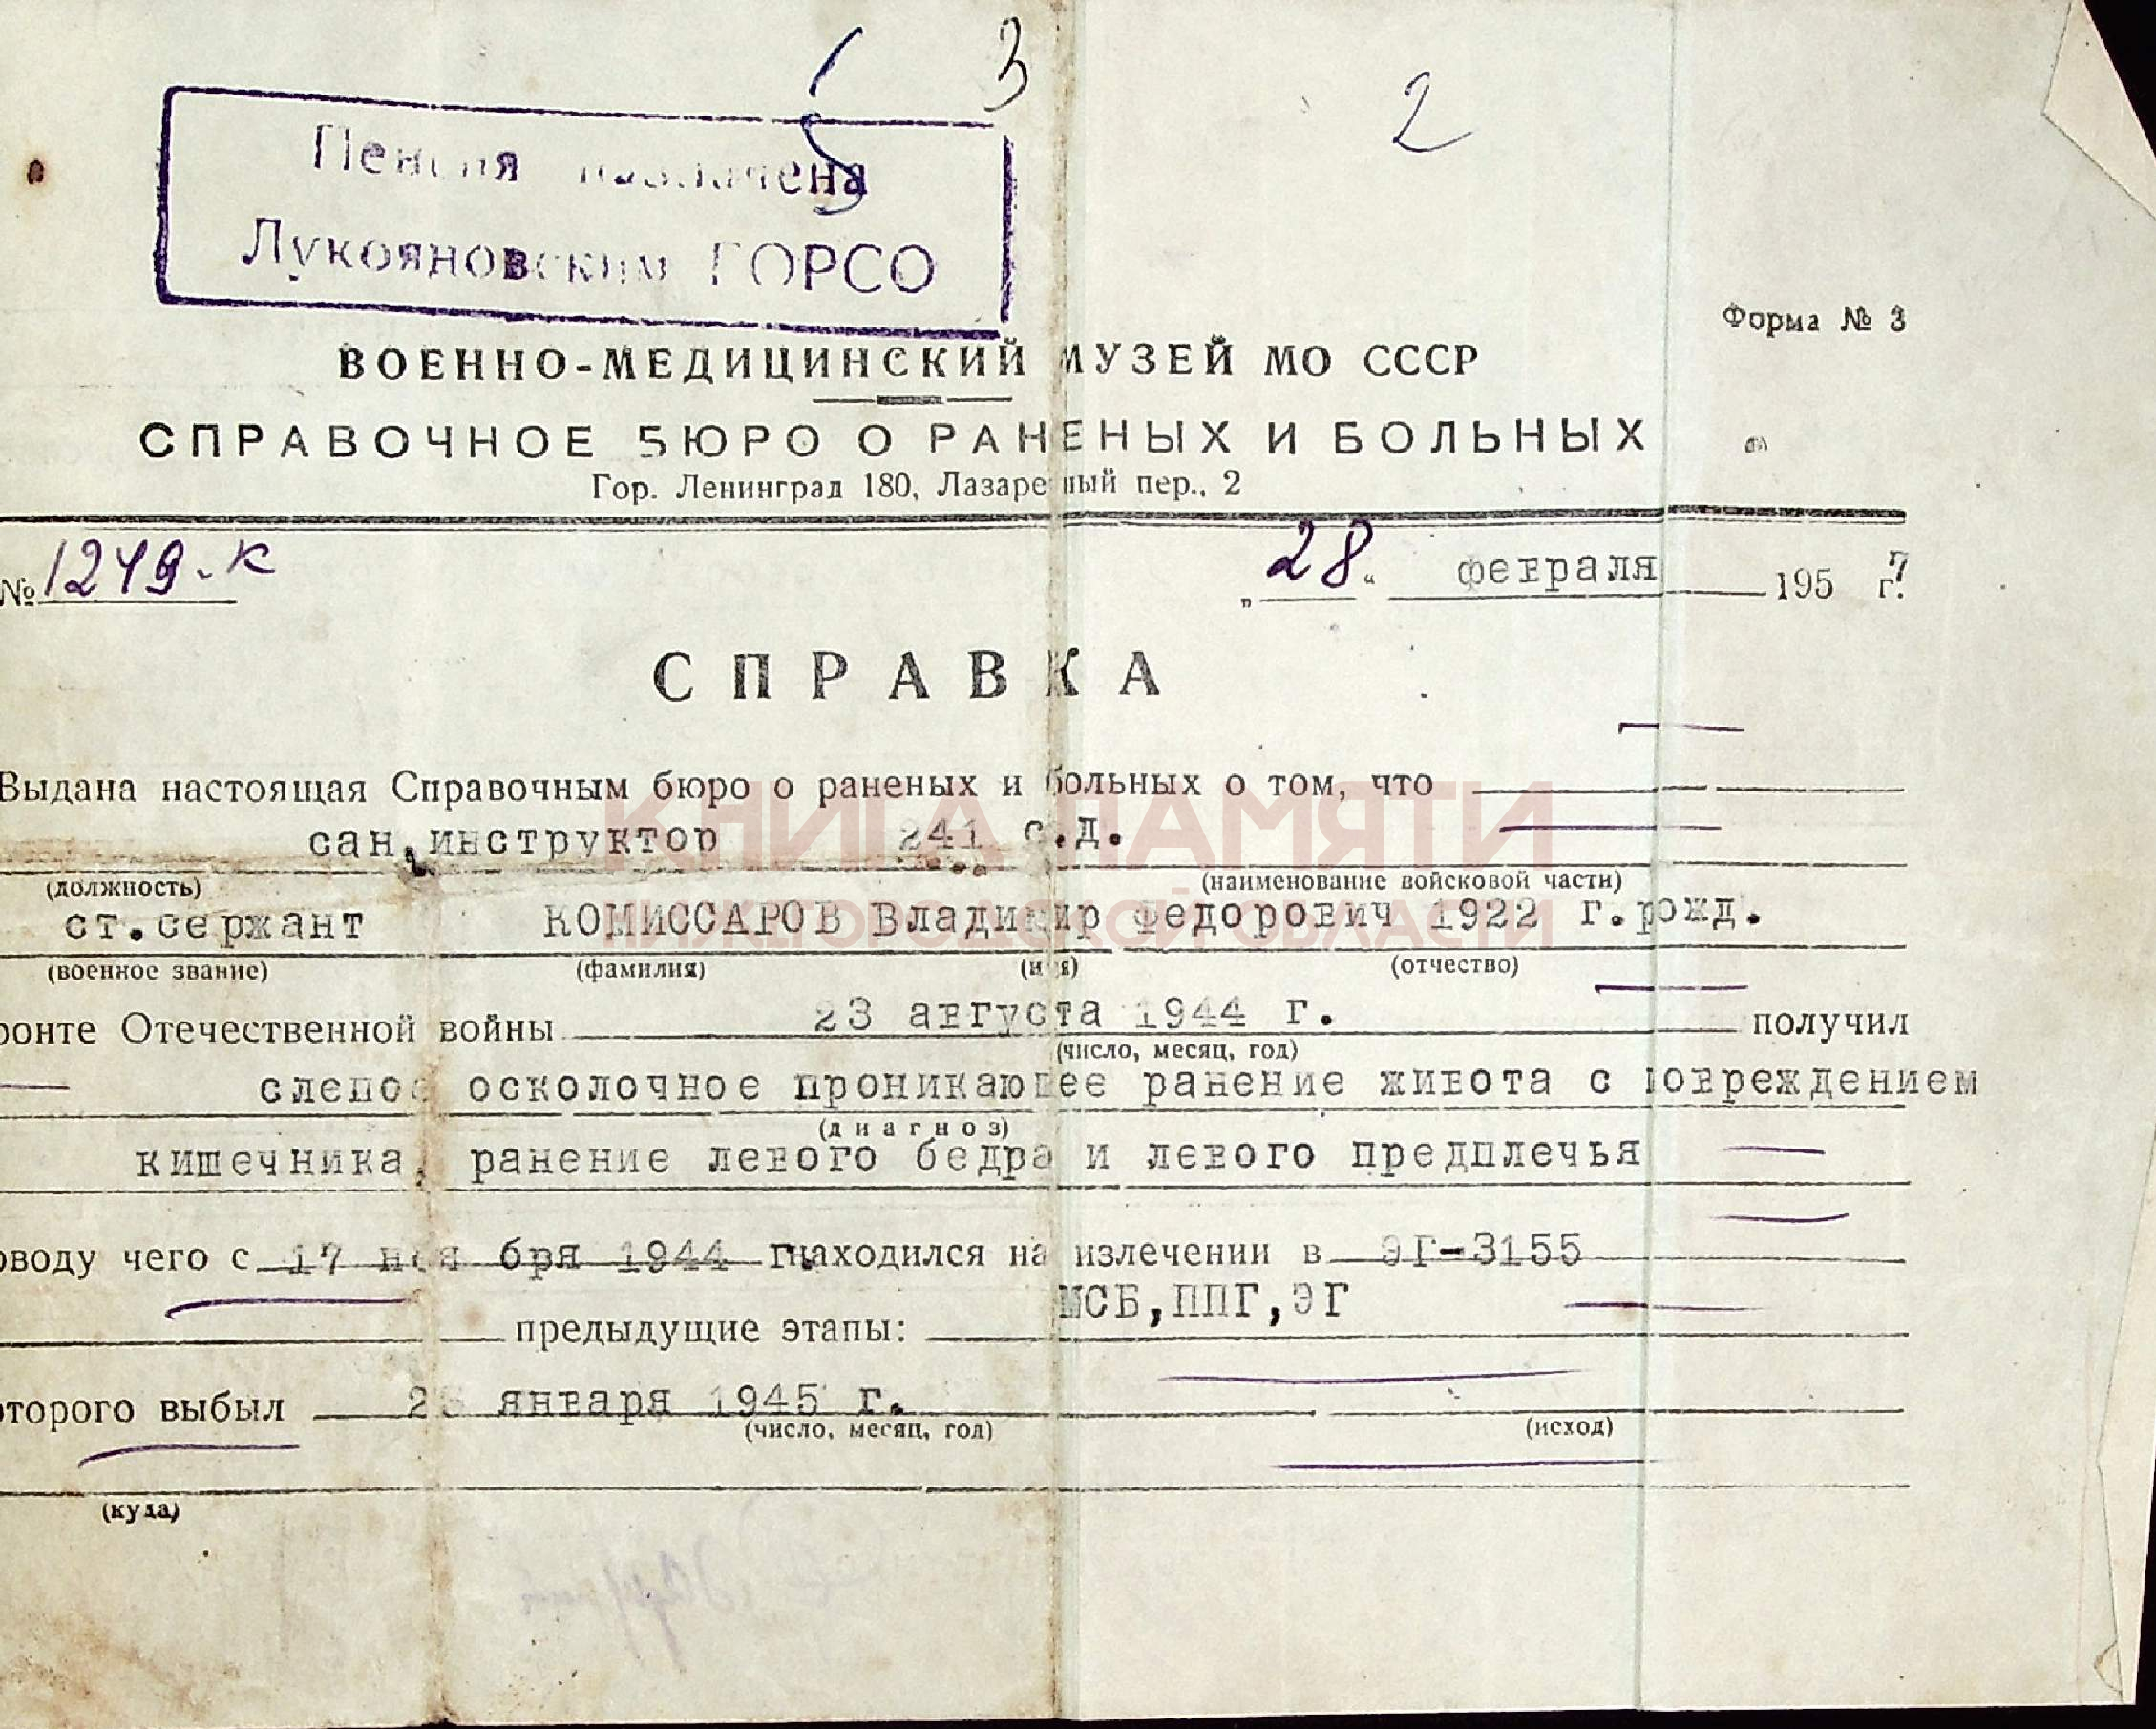 3
2
Пенсия назначена
Лукояновским ГОРСО
Форма № 3
ВОЕННО-МЕДИЦИНСКИЙ МУЗЕЙ МО СССР
СПРАВОЧНОЕ БЮРО О РАНЕНЫХ И БОЛЬНЫХ
Гор. Ленинград 180, Лазаретный пер., 2
№ 1249-к „28“ февраля 1957 г.
СПРАВКА
Выдана настоящая Справочным бюро о раненых и больных о том, что
сан.инструктор 241 с.д.
(должность) (наименование войсковой части)
ст.сержант КОМИССАРОВ Владимир Федорович 1922 г.рожд.
(военное звание) (фамилия) (имя) (отчество)
ронте Отечественной войны 23 августа 1944 г. получил
(число, месяц, год)
слепое осколочное проникающее ранение живота с повреждением
(диагноз)
кишечника, ранение левого бедра и левого предплечья
оводу чего с 17 ноября 1944 г. находился на излечении в ЭГ-3155
МСБ,ППГ,ЭГ
предыдущие этапы:
оторого выбыл января 1945 г.
(число, месяц, год) (исход)
(куда)
КНИГА ПАМЯТИ
НИЖЕГОРОДСКОЙ ОБЛАСТИ